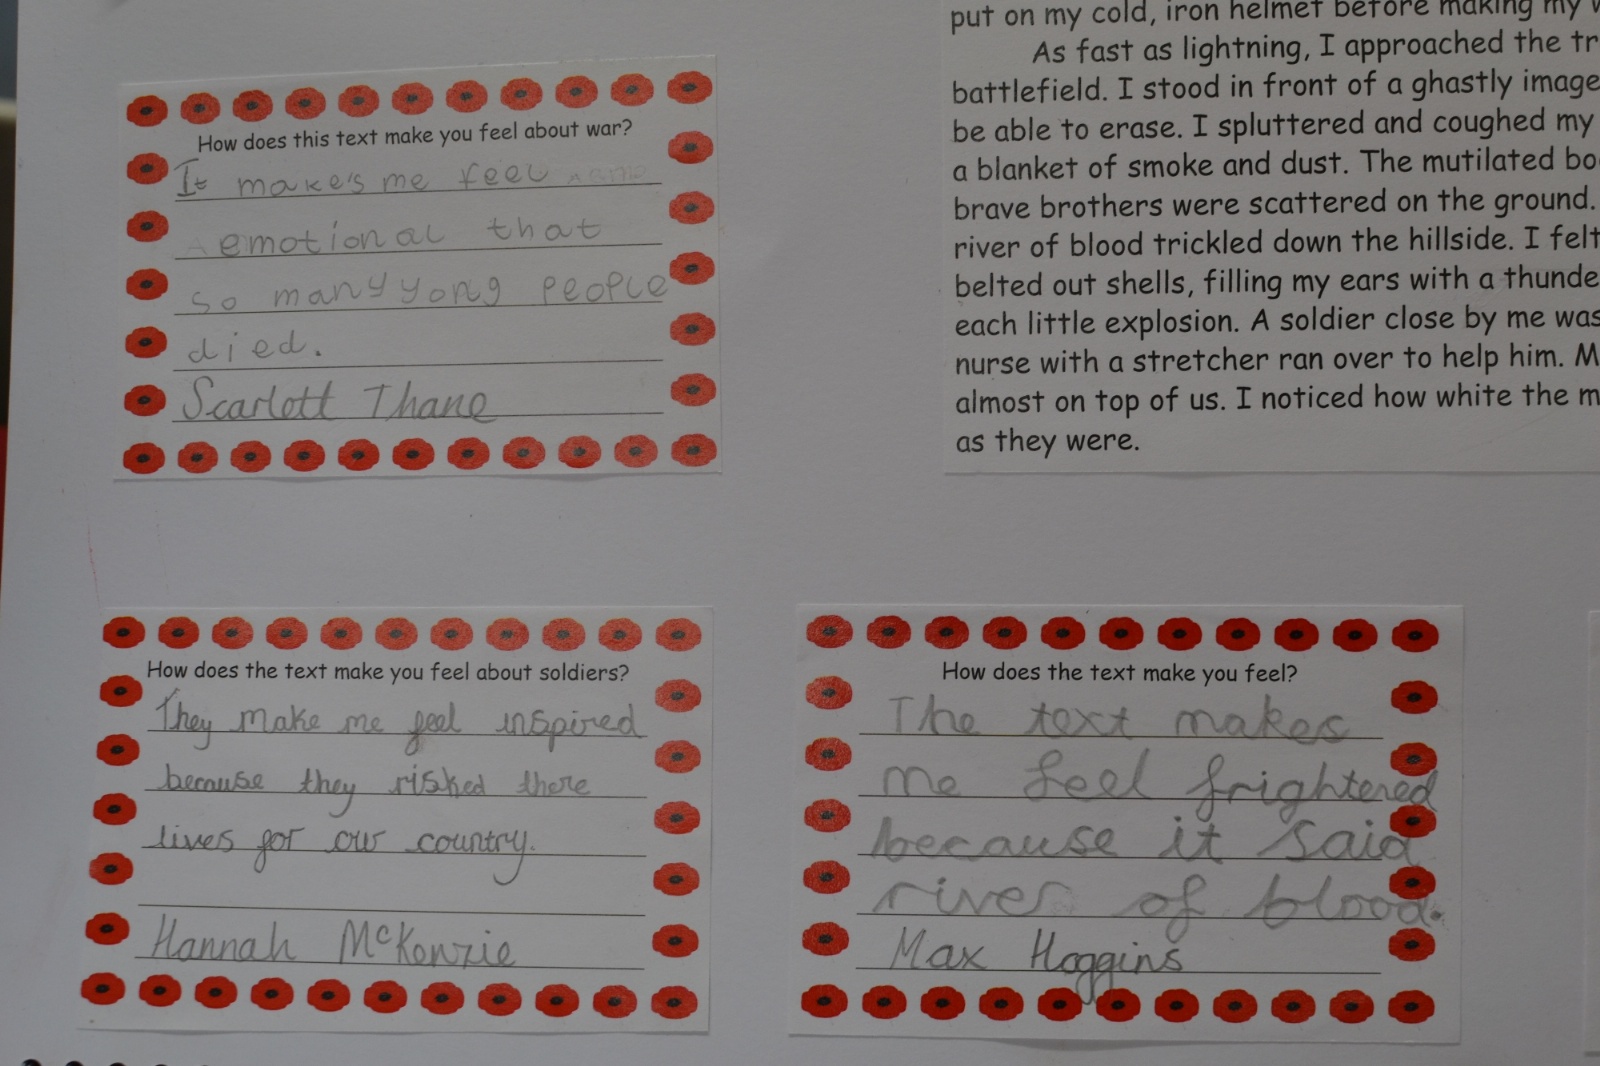 How does this text make you feel about war?
It make's me feel
emotional that
so many yong people
died.
Scarlott Thane
put on my cold, iron helmet before making my
As fast as lightning, I approached the tr
battlefield. I stood in front of a ghastly image
be able to erase. I spluttered and coughed my
a blanket of smoke and dust. The mutilated bo
brave brothers were scattered on the ground.
river of blood trickled down the hillside. I felt
belted out shells, filling my ears with a thunde
each little explosion. A soldier close by me was
nurse with a stretcher ran over to help him. M
almost on top of us. I noticed how white the m
as they were.
How does the text make you feel about soldiers?
They make me feel inspired
because they risked there
lives for our country.
Hannah McKenzie
How does the text make you feel?
The text makes
me feel frightered
because it said
river of blood.
Max Hoggins